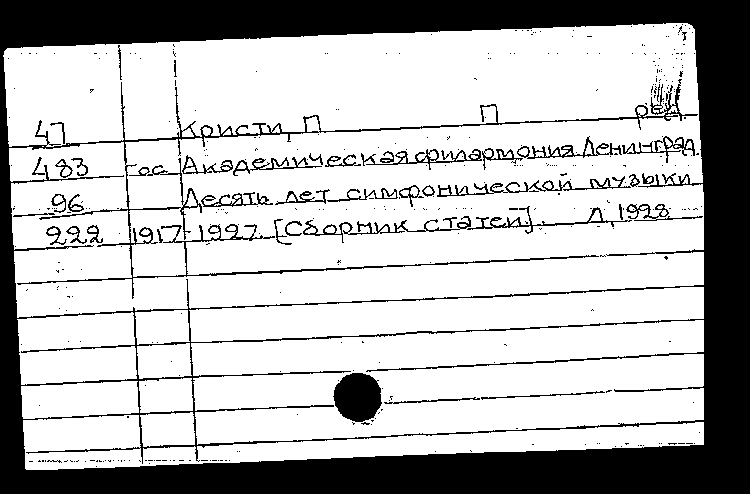 47 Кристи, П П ред.
483 Гос Академическая филармония Ленинград.
96 Десять лет симфонической музыки
222 1917-1927. [Сборник статей]. Л, 1928